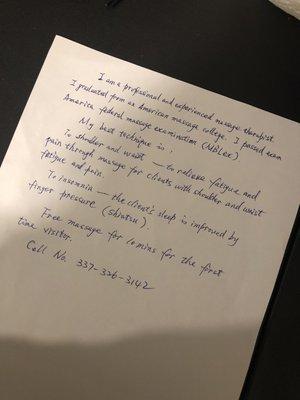 I am a professional and experienced massage therapist.
I graduated form an American massage college. I passed exam
America federal massage examination (MBLEx)
My best technique is:
To shoulder and waist — to relieve fatigue and
pain through massage for clients with shoulder and waist
fatigue and pain.
To insomnia — the client's sleep is improved by
finger pressure (shiatsu).
Free massage for comins for the first
time visitor.
Call No. 337-326-3142